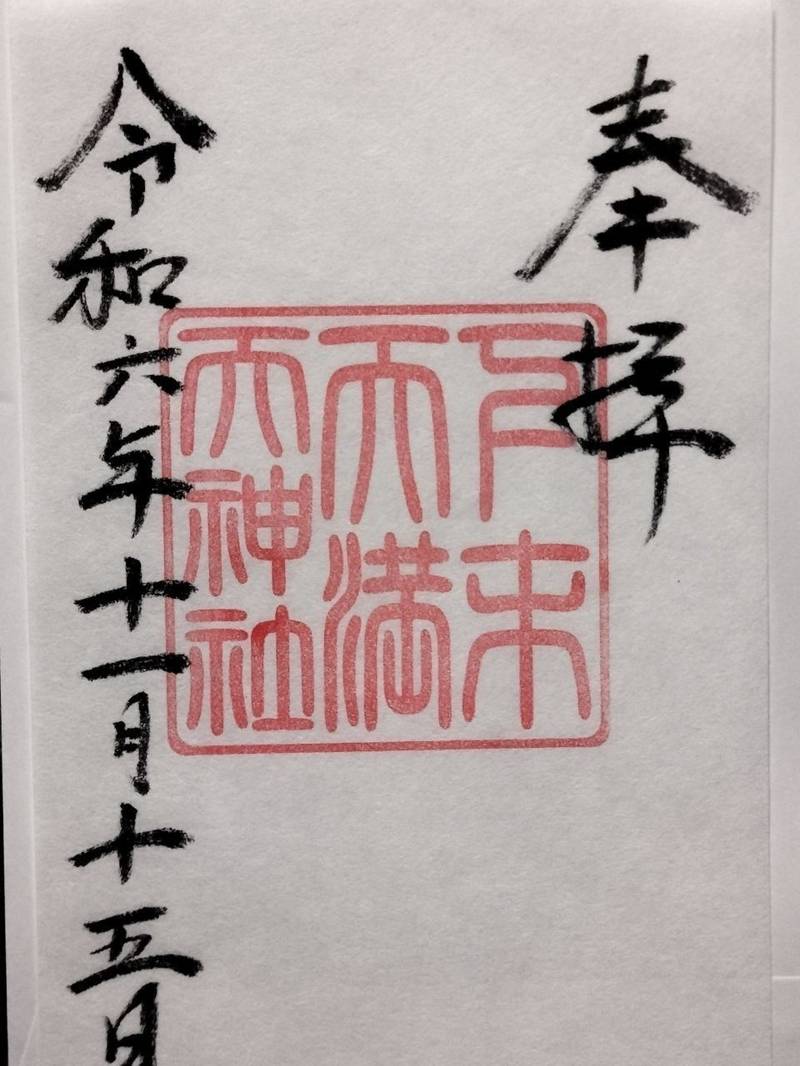 奉拝
久末
天満
天神社
令和六年十一月十五日